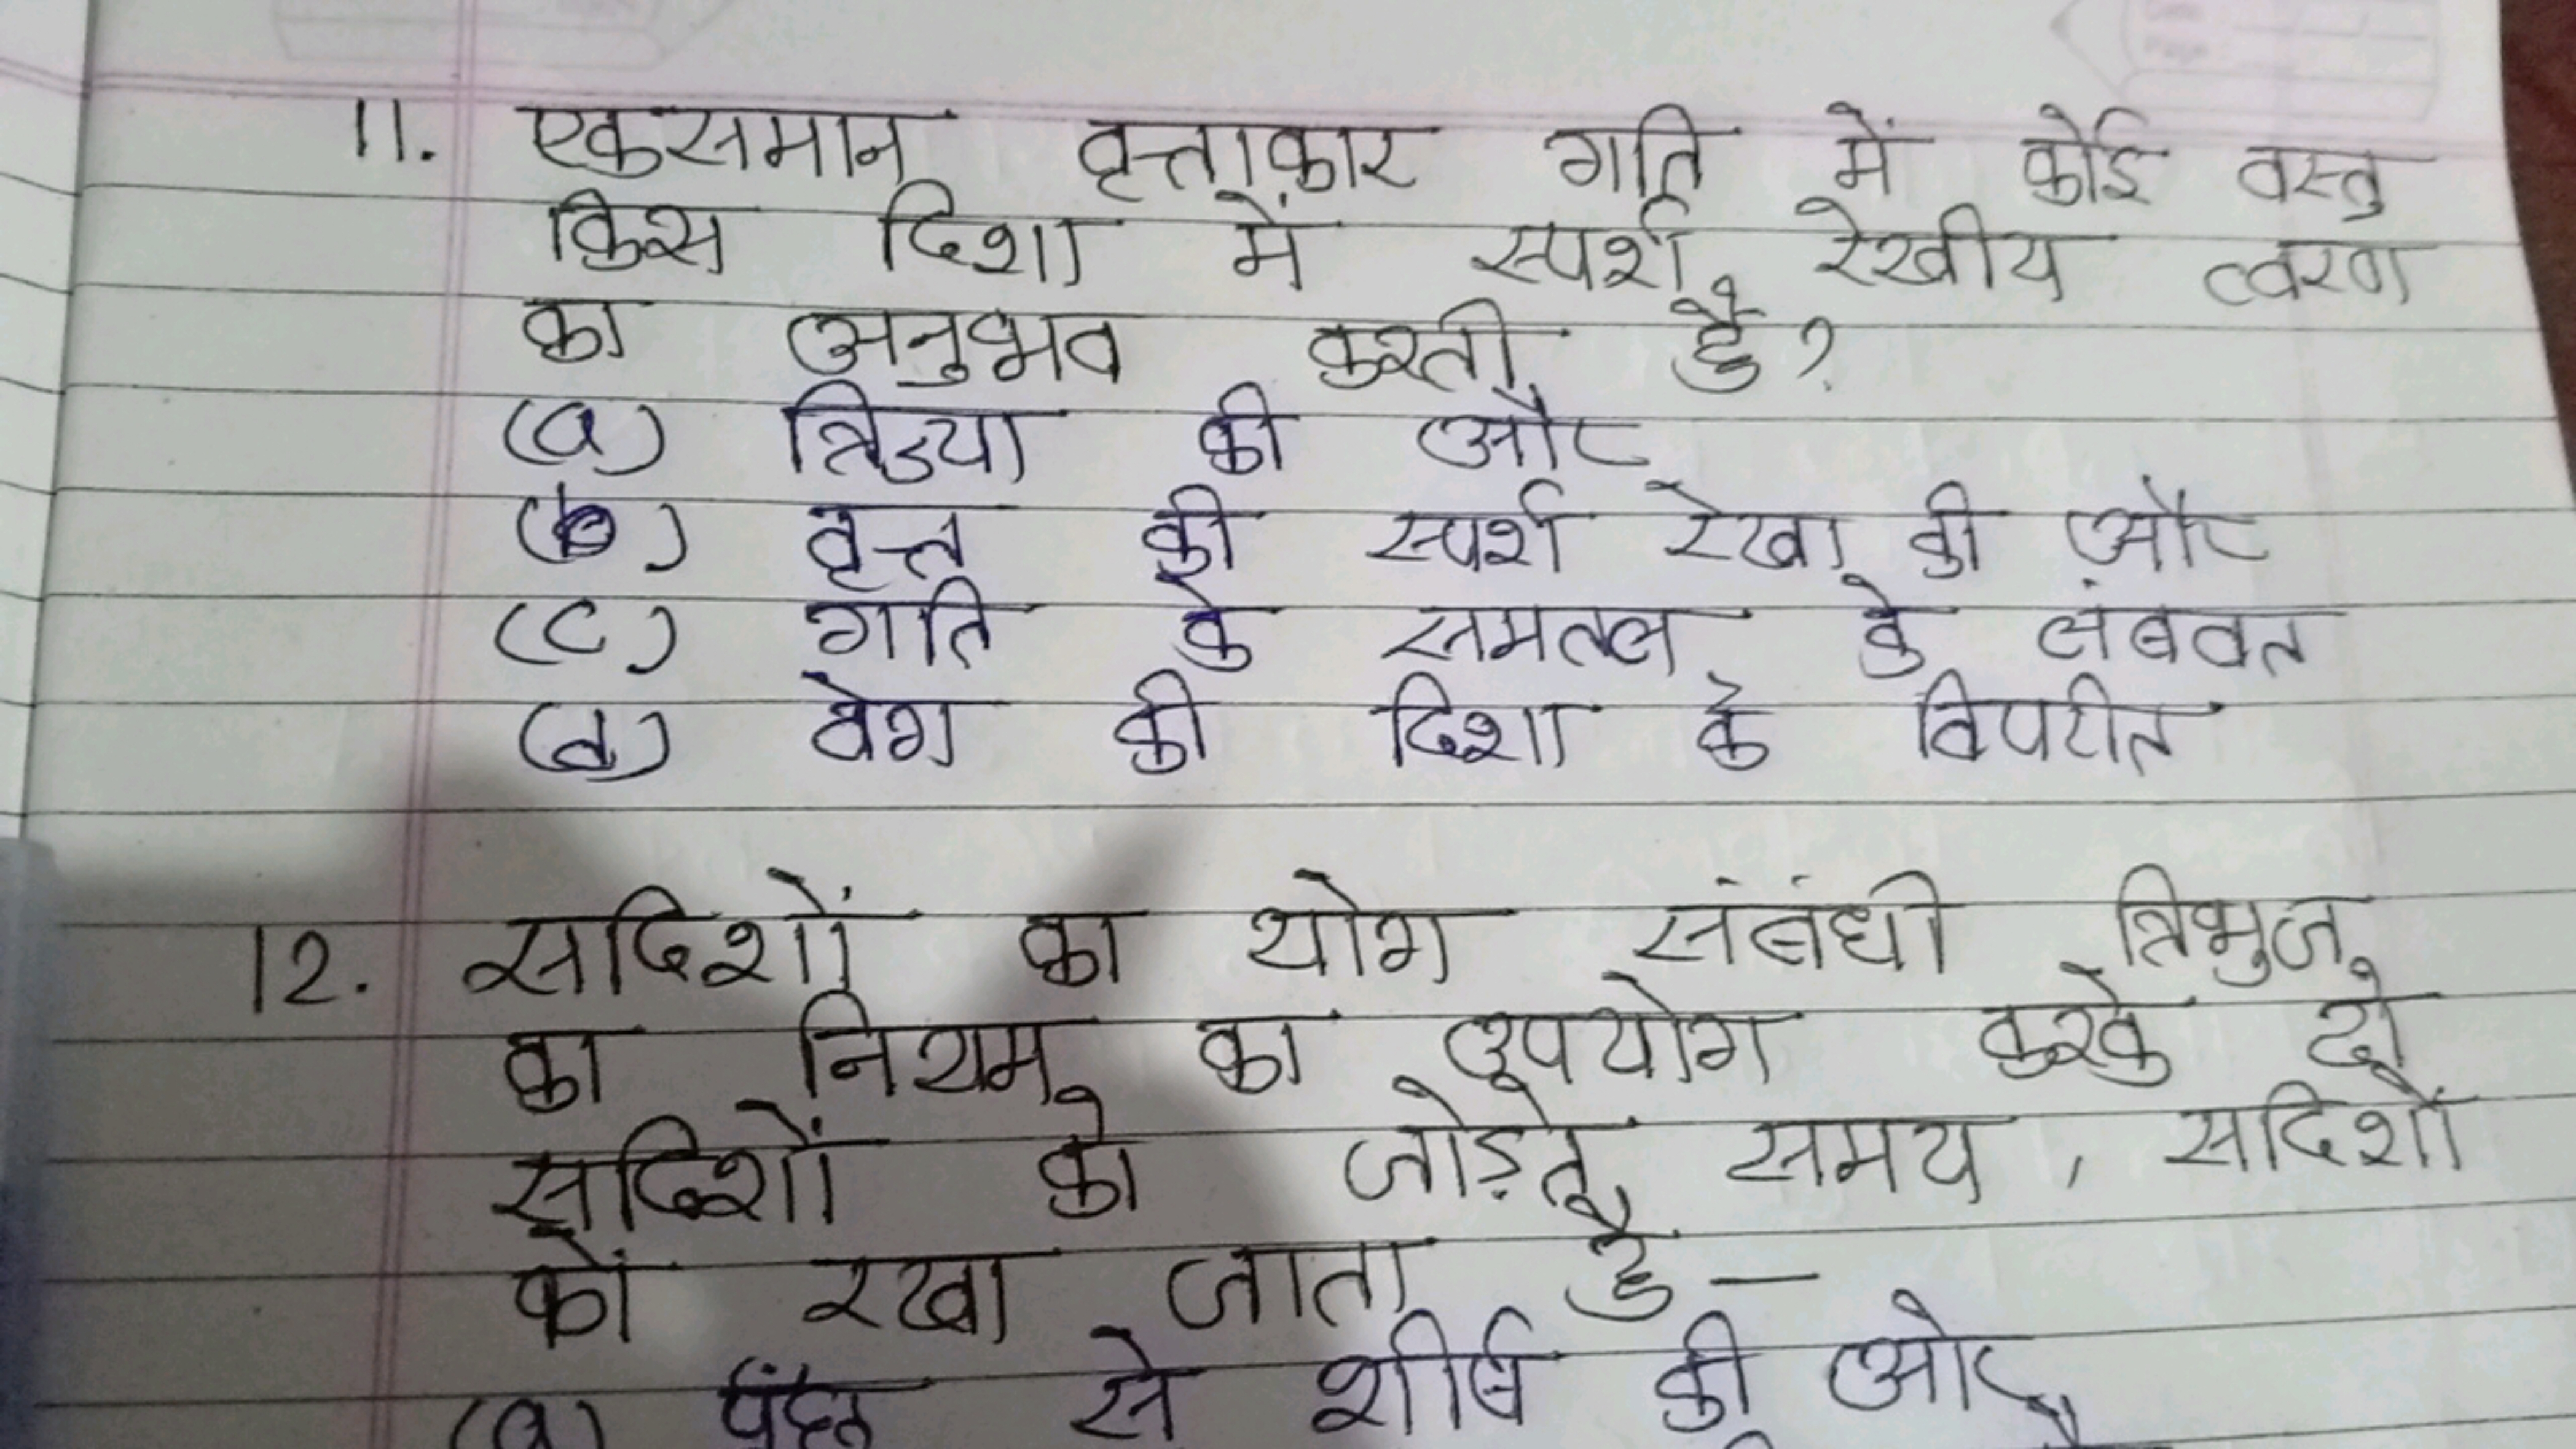 11. एकसमान वृत्ताकार गति में कोई वस्तु
किस दिशा में स्पर्श रेखीय त्वरण
का अनुभव करती है?
(a) त्रिज्या की और
(b) वृत्त की स्पर्श रेखा की और
(c) गति के समतल के लंबवत
(d) वेग की दिशा के विपरीत
12. सदिशों का योग संबंधी त्रिभुज
का नियम का उपयोग करके दो
सदिशों को जोड़ते समय, सदिशों
को रखा जाता है —
(a) पूंछ से शीर्ष की ओर